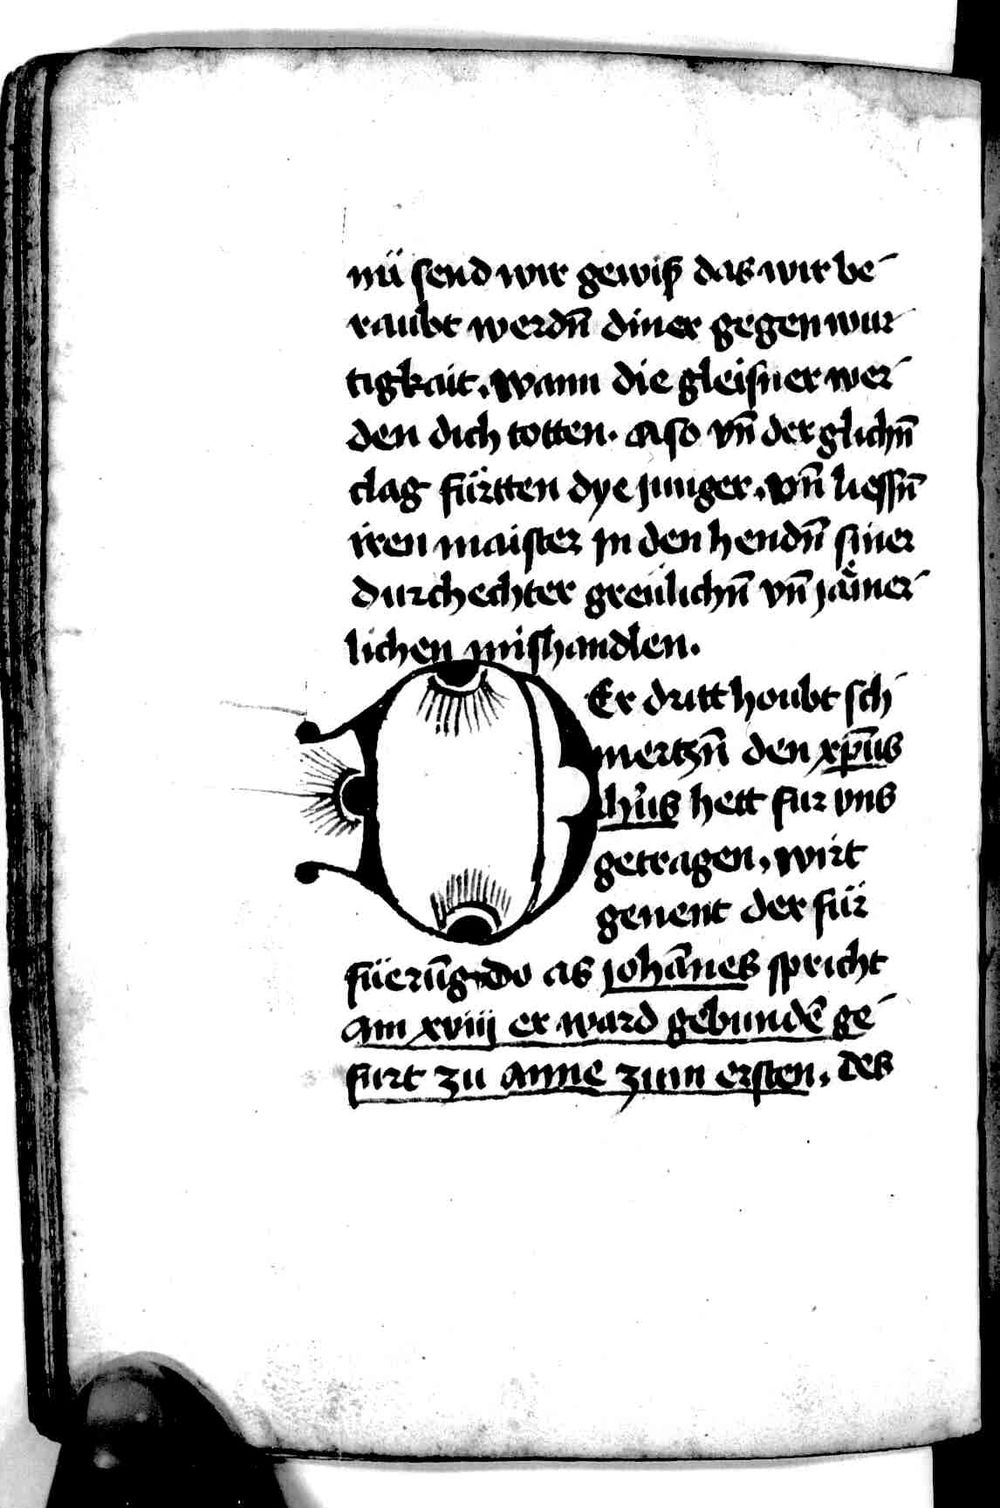 nü send wir gewiß das wir be
raubt werdn̄ diner gegenwur
tigkait. wann die gleisner wer
den dich totten. Also vn̄ der glichn̄
clag fürtten dye junger. vn̄ liessn̄
iren maister jn den hendn̄ siner
durchechter greülichn̄ vn̄ jämer
lichen mishandlen.
DEr dritt houbt sch
mertzn̄ den xp̄us
ihūs hett fur vns
getragen, wirt
genent der für
füerūg do as johānes spricht
am xviij er ward gebundē ge
furt zu anne zum ersten, des